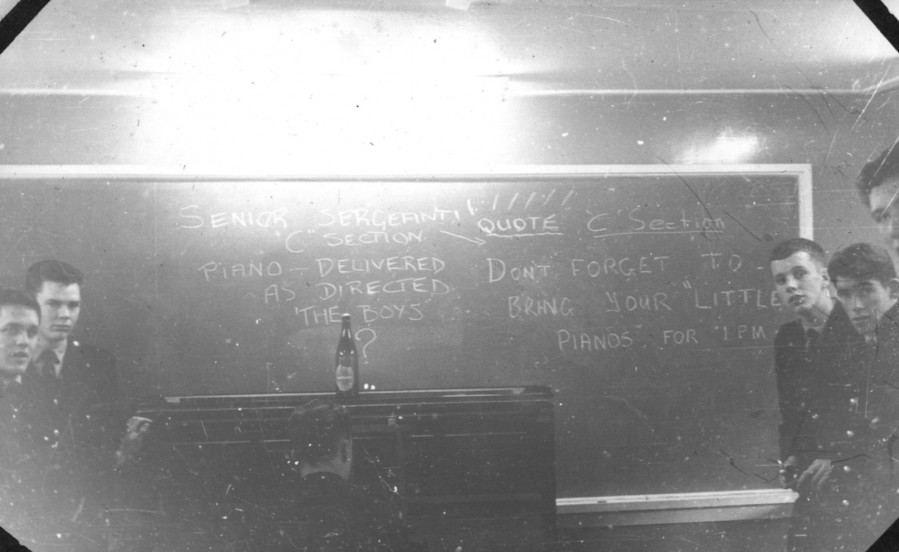 SENIOR SERGEANT!
"C" SECTION
PIANO – DELIVERED
AS DIRECTED
'THE BOYS'
?
QUOTE "C" Section
DONT FORGET TO
BRING YOUR "LITTLE
PIANOS FOR 1 PM